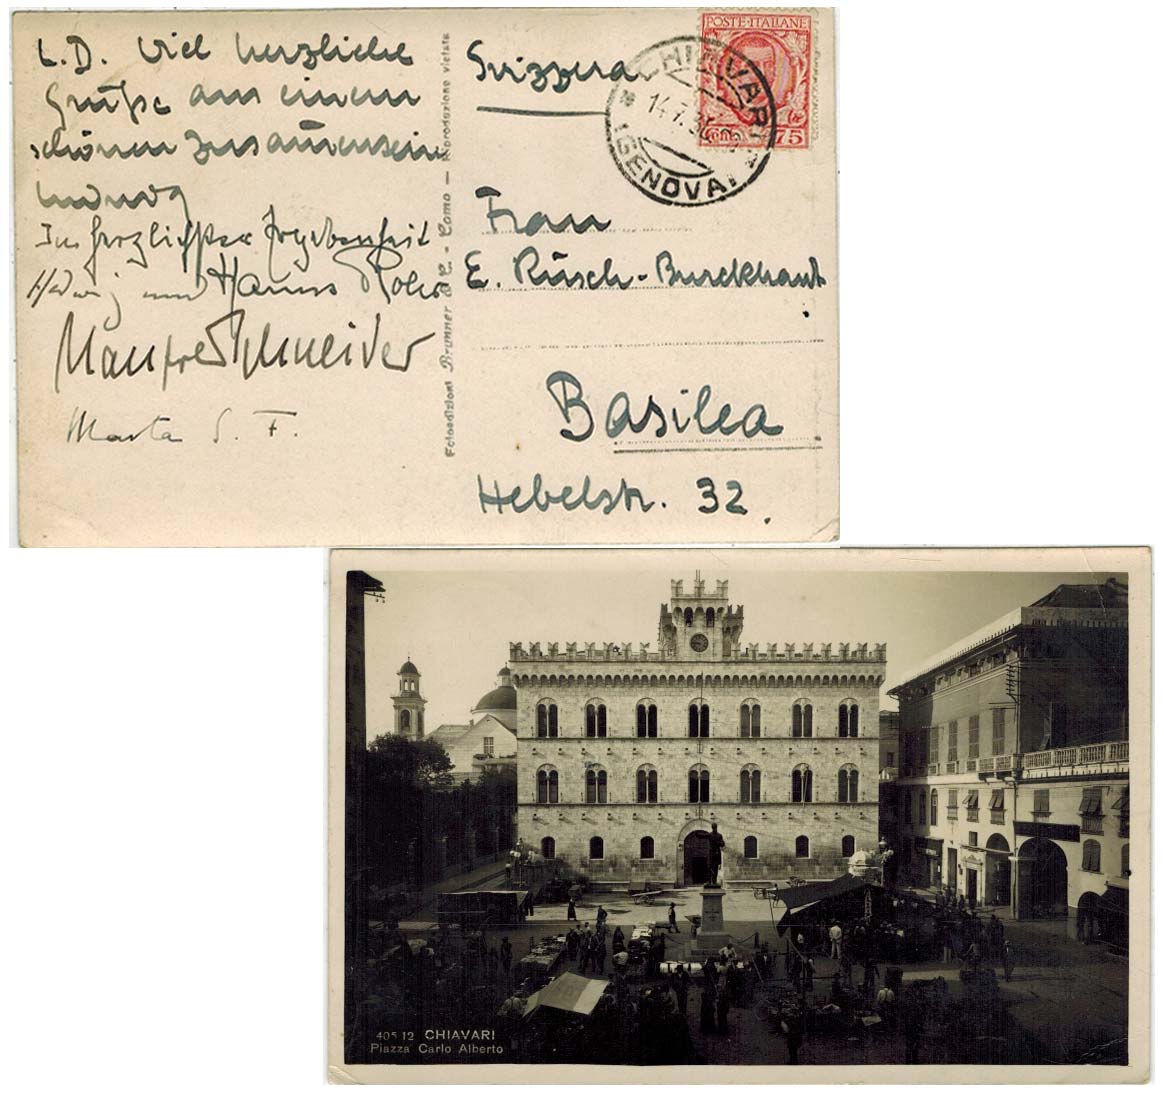 L. D. Viel herzliche
Grüße aus einem
schönen Zusammensein
Ludwig
In herzlichster Ergebenheit
Hedwig und Hanns
Manfred Schneider
Marta S. F.
Fotoedizioni Brunner & C. - Como - Riproduzione vietata
Svizzera
POSTE·ITALIANE
75
CHIAVARI
(GENOVA)
Frau
E. Rüsch-Burckhardt
Basilea
Hebelstr. 32.
405 12 CHIAVARI
Piazza Carlo Alberto